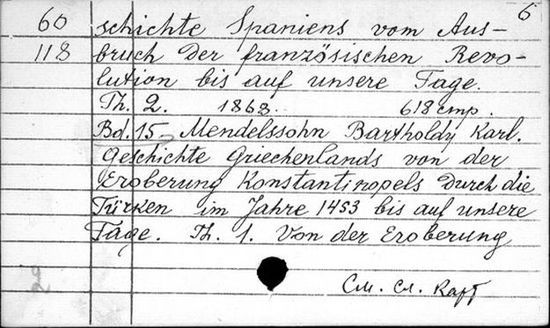 6
60 schichte Spaniens vom Aus-
118 bruch der französischen Revo-
lution bis auf unsere Tage.
Th. 2. 1868. 618 стр.
Bd. 15 - Mendelssohn Bartholdy Karl.
Geschichte Griechenlands von der
Eroberung Konstantinopels durch die
Türken im Jahre 1453 bis auf unsere
Tage. Th. 1. Von der Eroberung
2
См. сл. карт